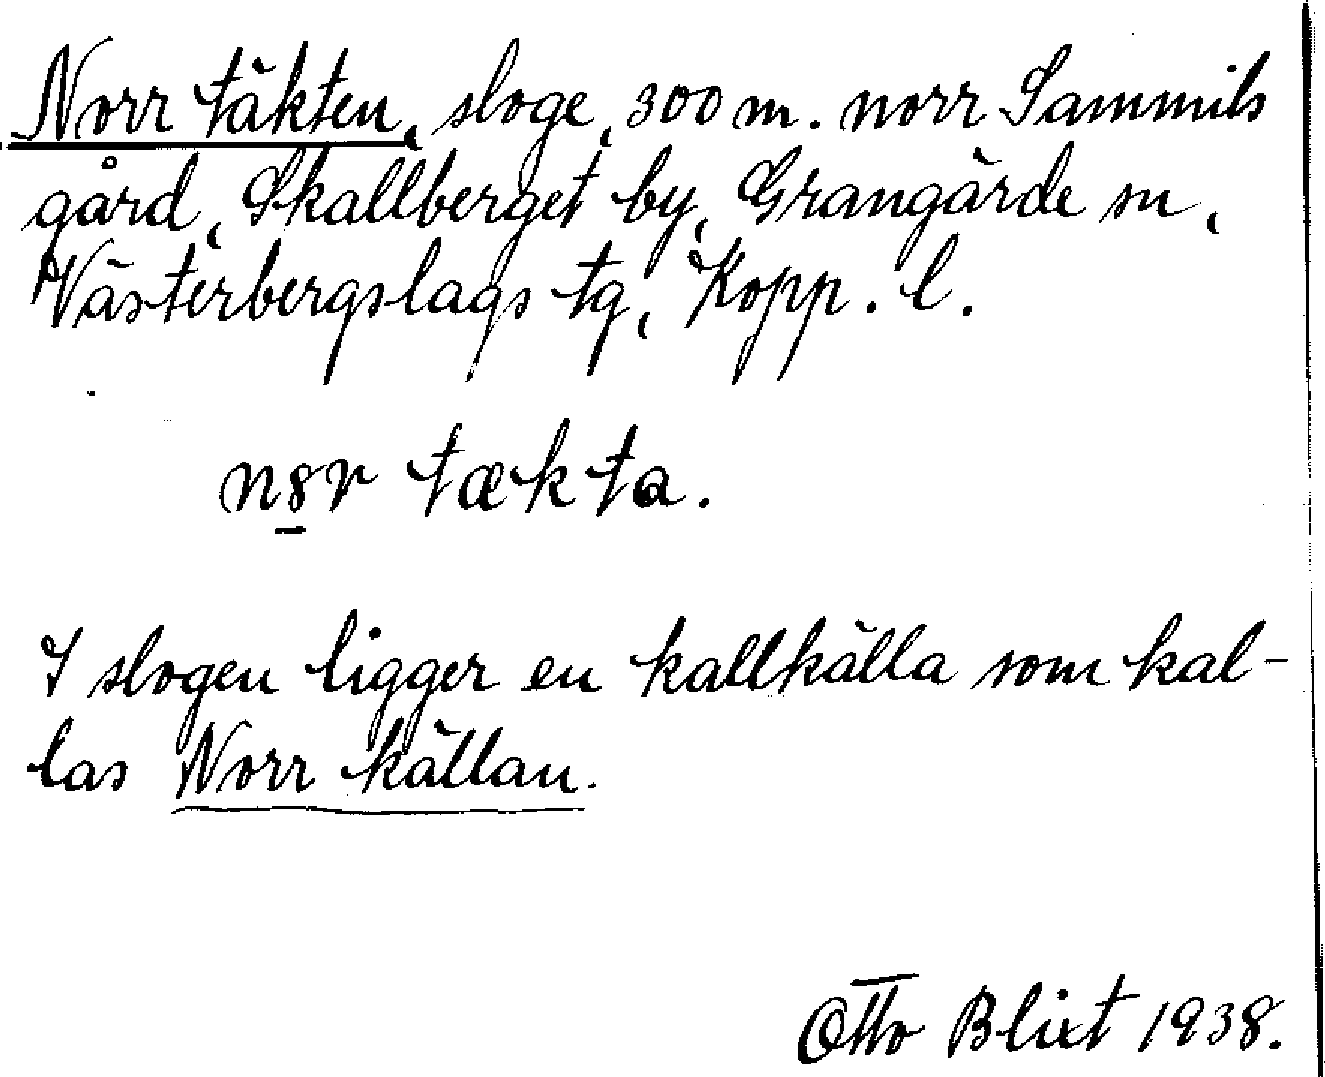 Norr täkten, sloge, 300 m. norr Sammils
gård, Skallberget by, Grangärde sn,
Västerbergslags tg, Kopp. l.
n8r tækta.
I slogen ligger en kallkälla som kal-
las Norr källan.
Otto Blixt 1938.